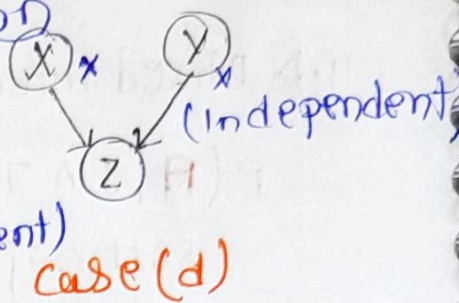 on
X x Y x
(Independent)
Z
ent)
case (d)